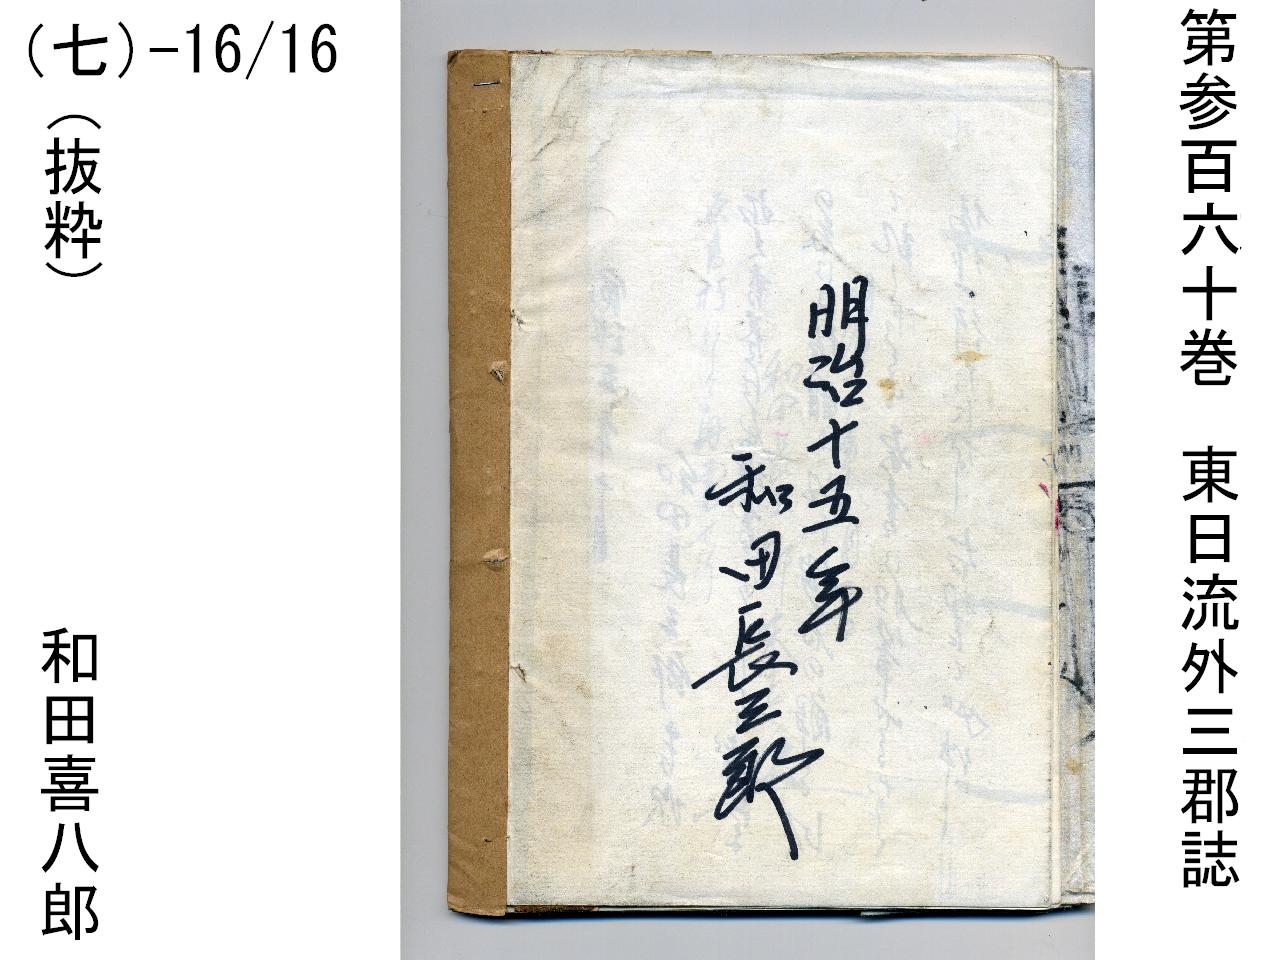 第参百六十巻 東日流外三郡誌
明治十五年
和田長三郎
(七)-16/16
(抜粋)
和田喜八郎